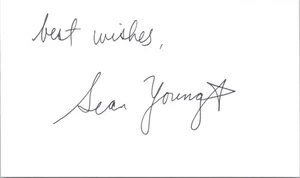 best wishes,
Sean Young